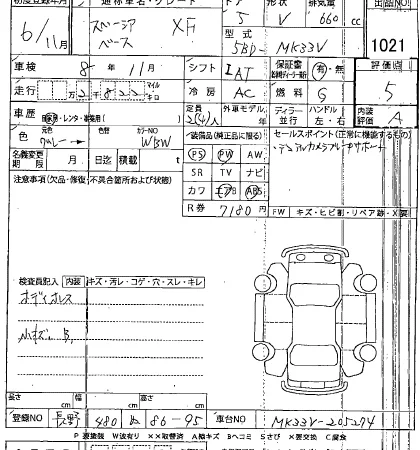 初度登録年月 通称車名・グレード ドア 形状 排気量 出品NO!
6/11月 スペーシア ベース XF 5 V 660 cc
型式 5BD-MK33V 1021
車検 8年11月 シフト IAT 保証書 有・無 評価点
走行 2822 マイル キロ 冷房 AC 燃料 G 5
車歴 自家用・レンタ・事業用( ) 定員 2(4)人 外車モデル 年 ディーラー 並行 ハンドル 左・右 内装評価 A
色 元色 グレー 色替 カラーNO WBW 装備品(純正品に限る) セールスポイント(正常に機能するもの)
PS PW AW
デュアルカメラブレーキサポート
名義変更期限 月 日迄 積載 t SR TV ナビ
注意事項(欠品・修復・不具合箇所および状態) カワ エアB ABS
R券 7180円 FW キズ・ヒビ割・リペア跡・X要
検査員記入 内装 キズ・汚レ・コゲ・穴・スレ・キレ
オーディオレス
小キズ B
長さ cm 幅 cm 高さ cm
登録NO 長野 480 に 86-95 車台NO MK33V-205274
P 要塗装 W波有り ××取替済 A線キズ Bヘコミ Sさび ×要交換 C腐食